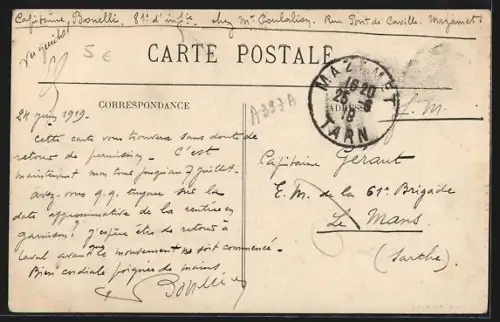 Capitaine, Bonelli, 81e d'infie. chez Mr Rue Pont de Caville. Mazamet
5 €
CARTE POSTALE
CORRESPONDANCE
ADRESSE
MAZAMET
16 20
25 - 6
TARN
A393A
F.M.
24 juin 1919.
Cette carte vous trouvera sans doute de
retour de permission. C'est
maintenant mon tour jusqu'au 7 juillet.
Avez-vous q.q. tuyau sur la
date approximative de la rentrée en
garnison? J'espère être de retour à
Laval avant que le mouvement ne soit commencé.
Bien cordiale poignée de mains
Bonelli
Capitaine Geraut
E.M. de la 61e Brigade
Le Mans
(Sarthe)